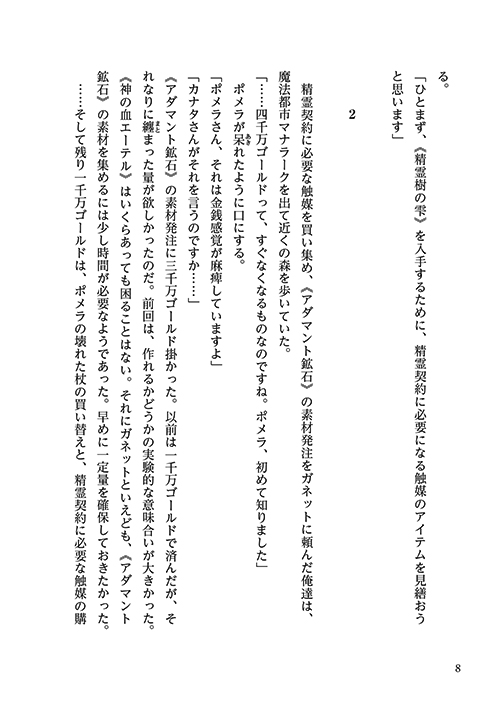 る。
「ひとまず、《精霊樹の雫》を入手するために、精霊契約に必要になる触媒のアイテムを見繕おう
と思います」
2
精霊契約に必要な触媒を買い集め、《アダマント鉱石》の素材発注をガネットに頼んだ俺達は、
魔法都市マナラークを出て近くの森を歩いていた。
「……四千万ゴールドって、すぐなくなるものなのですね。ポメラ、初めて知りました」
ポメラが呆れたように口にする。
「ポメラさん、それは金銭感覚が麻痺していますよ」
「カナタさんがそれを言うのですか……」
《アダマント鉱石》の素材発注に三千万ゴールド掛かった。以前は一千万ゴールドで済んだが、そ
れなりに纏まった量が欲しかったのだ。前回は、作れるかどうかの実験的な意味合いが大きかった。
《神の血エーテル》はいくらあっても困ることはない。それにガネットといえども、《アダマント
鉱石》の素材を集めるには少し時間が必要なようであった。早めに一定量を確保しておきたかった。
……そして残り一千万ゴールドは、ポメラの壊れた杖の買い替えと、精霊契約に必要な触媒の購
あき
まと
8